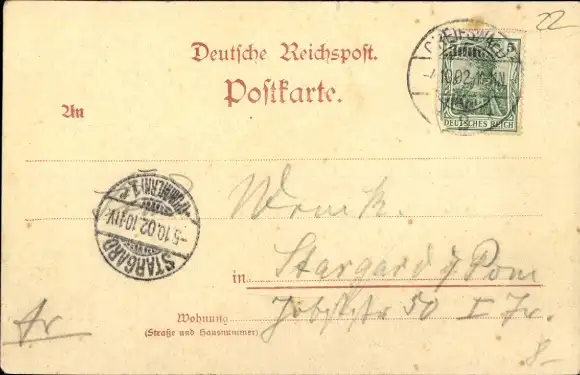 22
Deutsche Reichspost.
Postkarte.
An
GREIFSWALD
4.10.02.10-11N
DEUTSCHES REICH
STARGARD
-5.10.02.10-11V
(POMMERN) 1
in Stargard i/Pom
Wohnung
(Straße und Hausnummer)
Jobststr 50 I Tr.
Fr
8-